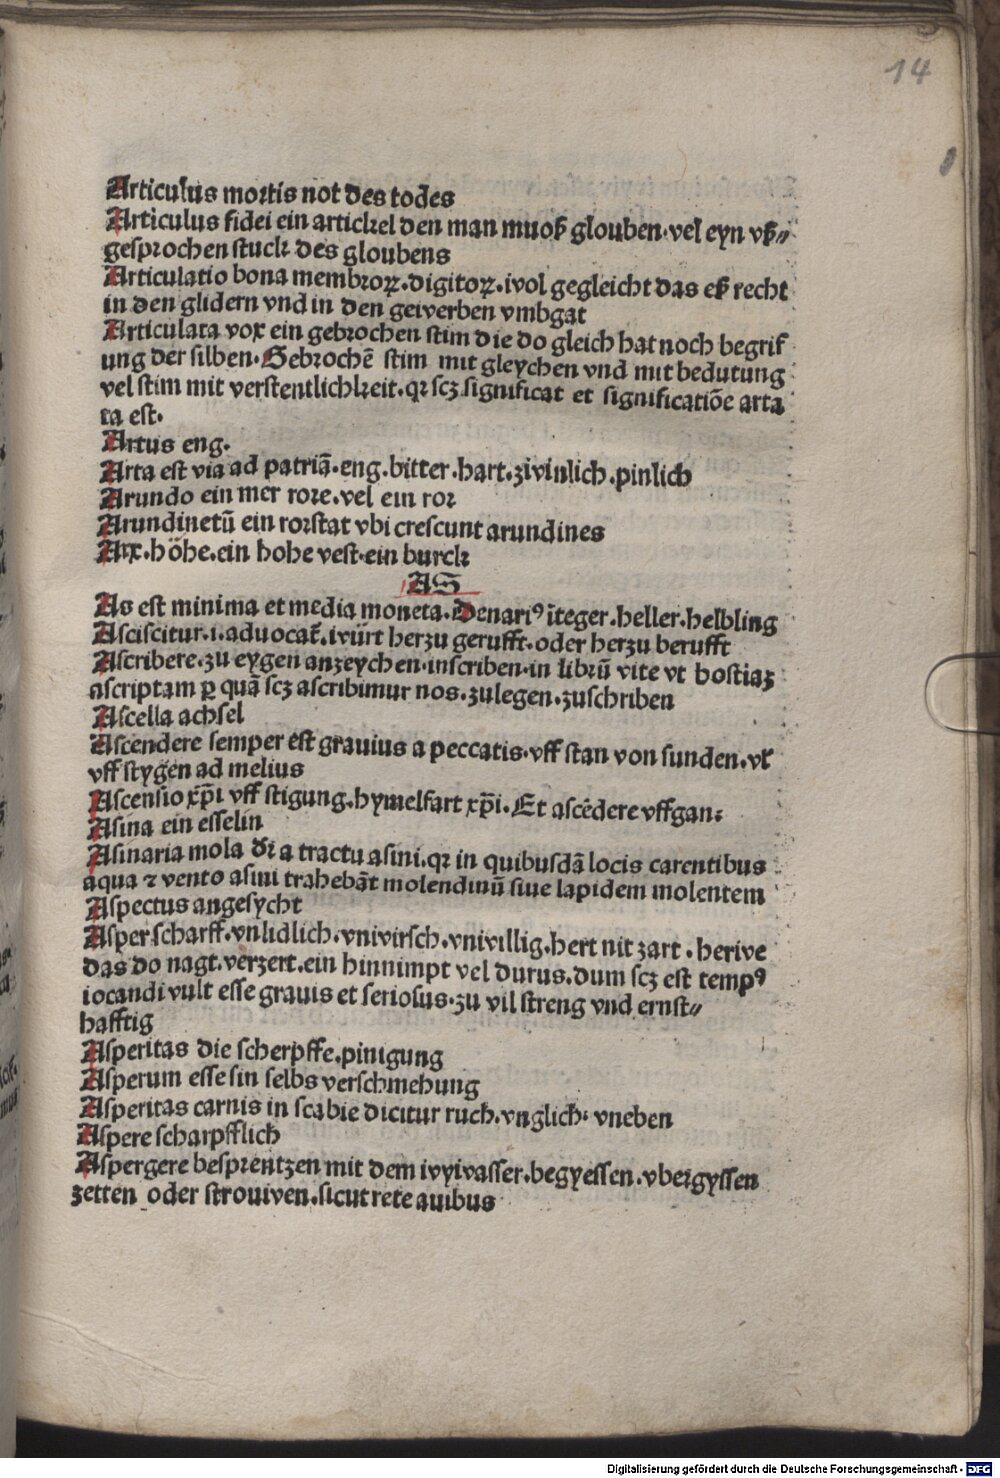 14
Articulus mortis not des todes
Articulus fidei ein artickel den man muoß glouben·vel eyn vß⸗
gesprochen stuck des gloubens
Articulatio bona membroꝝ.digitoꝝ.wol gegleicht das eß recht
in den glidern vnd in den gewerben vmbgat
Articulata vox ein gebrochen stim die do gleich hat noch begrif
ung der silben·Gebrochē stim mit gleychen vnd mit bedutung
vel stim mit verstentlichkeit·qꝛ scꝫ significat et significatiōe arta
ta est·
Artus eng·
Arta est via ad patriā·eng.bitter.hart.zwinlich.pinlich
Arundo ein mer rore.vel ein ror
Arundinetū ein rorstat vbi crescunt arundines
Arx.höhe.ein hohe vest·ein burck
AS
As est minima et media moneta.Denariꝰ īteger.heller.helbling
Asciscitur.i.aduocat̃.würt herzu gerufft.oder herzu berufft
Ascribere.zu eygen anzeychen·inscriben·in librū vite vt hostiaꝫ
ascriptam ꝑ quā scꝫ ascribimur nos.zulegen.zuschriben
Ascella achsel
Ascendere semper est grauius a peccatis.vff stan von sunden.vl̓
vff stygen ad melius
Ascensio xp̄i vff stigung.hymelfart xp̄i.Et ascēdere vffgan:
Asina ein esselin
Asinaria mola dr̄ a tractu asini.qꝛ in quibusdā locis carentibus
aqua ⁊ vento asini trahebāt molendinū siue lapidem molentem
Aspectus angesycht
Asper scharff.vnlidlich.vnwirsch.vnwillig.hert nit zart.herwe
das do nagt.verzert.ein hinnimpt vel durus.dum scꝫ est tempꝰ
iocandi vult esse grauis et seriosus·zu vil streng vnd ernst⸗
hafftig
Asperitas die scherpffe.pinigung
Asperum esse sin selbs verschmehung
Asperitas carnis in scabie dicitur ruch.vnglich·vneben
Aspere scharpfflich
Aspergere besprentzen mit dem wywasser.begyessen.vbergyssen
zetten oder strouwen.sicut rete auibus
Digitalisierung gefördert durch die Deutsche Forschungsgemeinschaft - DFG